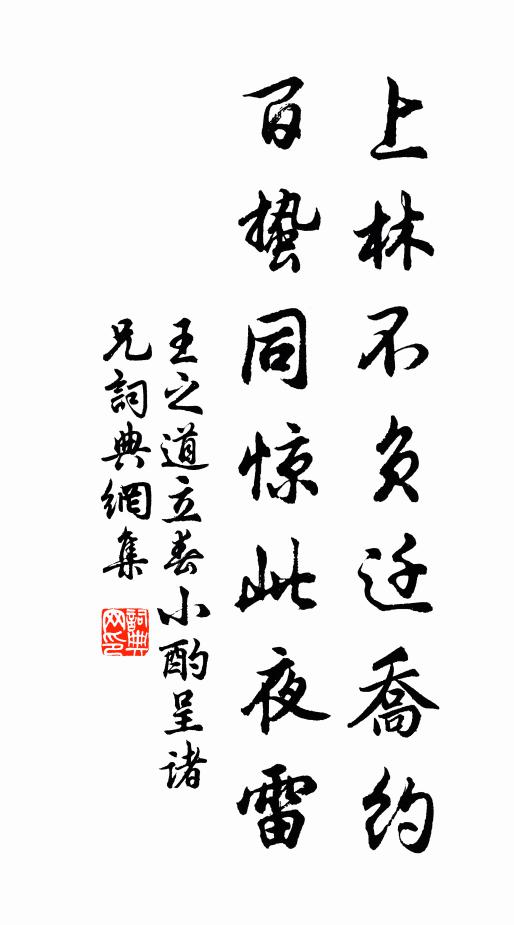 上林不负迁喬约
百蛰同惊此夜雷
王之道立春小酌呈诸
兄詞典網集
詞典
网印